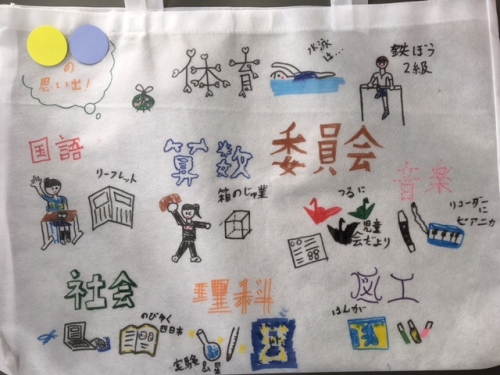 の
思い出!
体育
水泳
は…
鉄ぼう
2級
国語
リーフレット
算数
箱のじゅ業
委員会
つるに
児童
会だより
音楽
リコーダー
に
ピアニカ
社会
のびゆく
四日市
理科
実験
図工
はんが